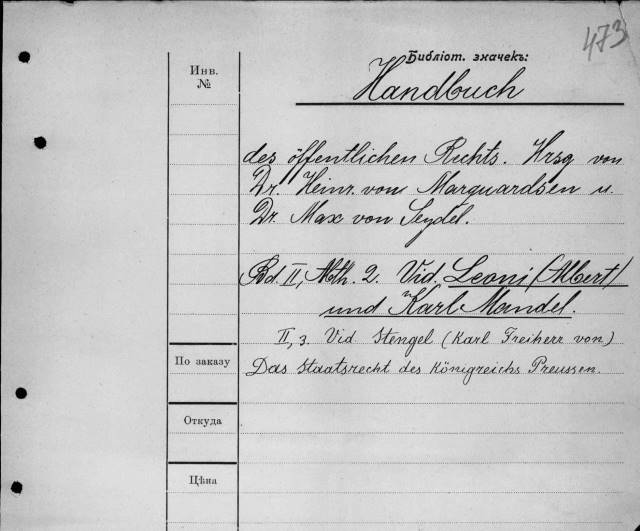 473
Бібліот. значекъ:
Инв.
№
Handbuch
des öffentlichen Rechts. Hrsg von
Dr. Heinr. von Marquardsen u.
Dr. Max von Seydel.
Bd. II, Abth. 2. Vid. Leoni (Albert)
und Karl Mandel.
II, 3. Vid Stengel (Karl Freiherr von)
По заказу
Das Staatsrecht des Königreichs Preussen.
Откуда
Цѣна